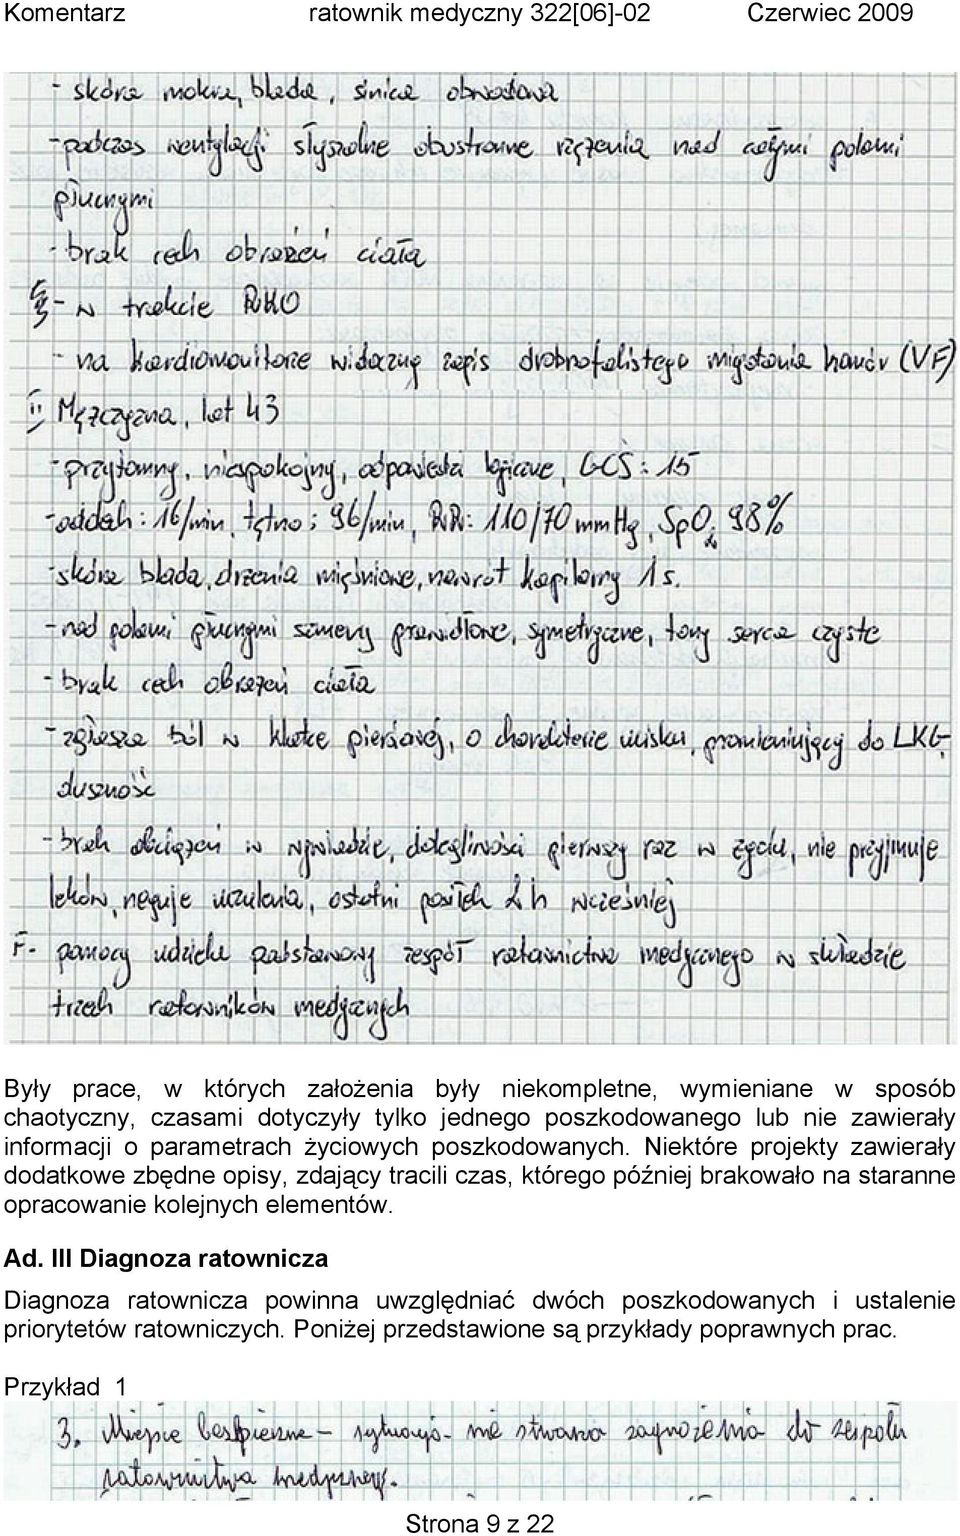 Komentarz ratownik medyczny 322[06]-02 Czerwiec 2009
- skóra mokra, blada, sinica obwodowa
- podczas wentylacji słyszalne obustronne rzężenia nad całymi polami
płucnymi
- brak cech obrażeń ciała
- w trakcie RKO
- na kardiomonitorze widoczny zapis drobnofalistego migotania komór (VF)
II Mężczyzna, lat 43
- przytomny, niespokojny, odpowiedzi logiczne, GCS: 15
- oddech: 16/min, tętno: 96/min, RR: 110/70 mmHg, SpO2 98%
- skóra blada, drżenia mięśniowe, nawrót kapilarny 1s.
- nad polami płucnymi szmery prawidłowe, symetryczne, tony serca czyste
- brak cech obrażeń ciała
- zgłasza ból w klatce piersiowej, o charakterze ucisku, promieniujący do LKG,
duszność
- brak obciążeń w wywiadzie, dolegliwości pierwszy raz w życiu, nie przyjmuje
leków, neguje uczulenia, ostatni posiłek 2h wcześniej
F- pomocy udziela podstawowy zespół ratownictwa medycznego w składzie
trzech ratowników medycznych
Były prace, w których założenia były niekompletne, wymieniane w sposób
chaotyczny, czasami dotyczyły tylko jednego poszkodowanego lub nie zawierały
informacji o parametrach życiowych poszkodowanych. Niektóre projekty zawierały
dodatkowe zbędne opisy, zdający tracili czas, którego później brakowało na staranne
opracowanie kolejnych elementów.
Ad. III Diagnoza ratownicza
Diagnoza ratownicza powinna uwzględniać dwóch poszkodowanych i ustalenie
priorytetów ratowniczych. Poniżej przedstawione są przykłady poprawnych prac.
Przykład 1
3. Miejsce bezpieczne - sytuacja nie stwarza zagrożenia dla zespołu
ratownictwa medycznego.
Strona 9 z 22